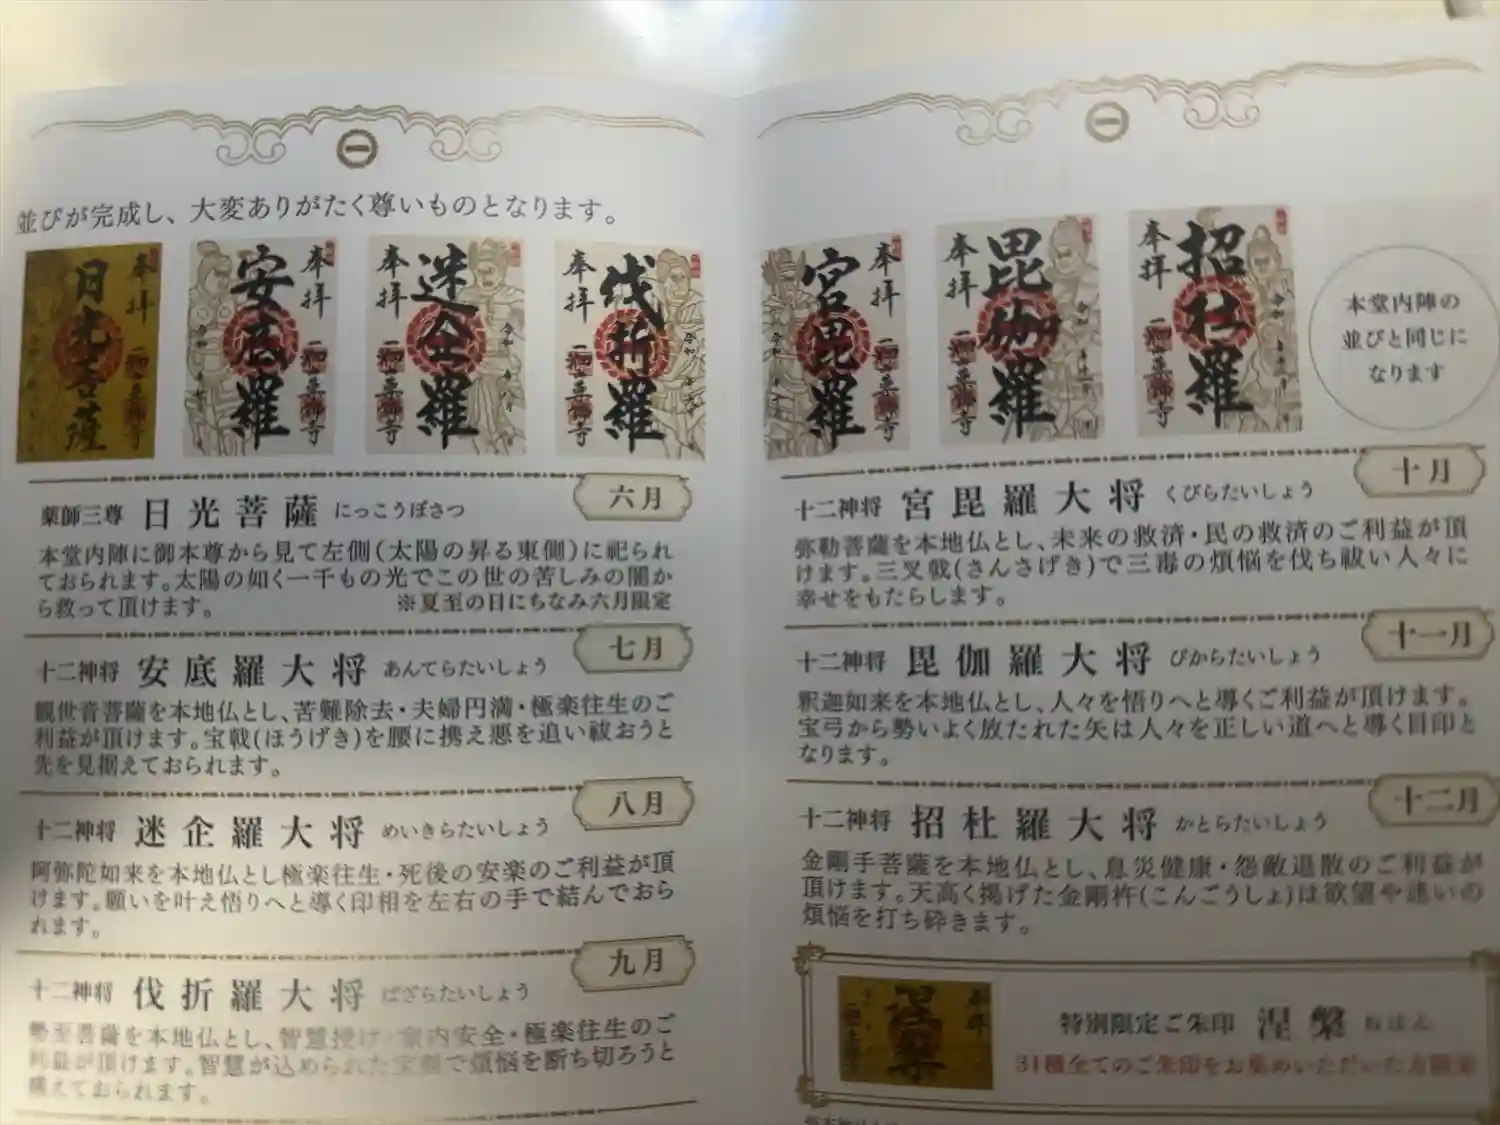 一
並びが完成し、大変ありがたく尊いものとなります。
奉拝
日光菩薩
奉拝
安底羅
奉拝
迷企羅
奉拝
伐折羅
六月
薬師三尊 日光菩薩 にっこうぼさつ
本堂内陣に御本尊から見て左側(太陽の昇る東側)に祀られ
ております。太陽の如く一千もの光でこの世の苦しみの闇か
ら救って頂けます。 ※夏至の日にちなみ六月限定
七月
十二神将 安底羅大将 あんてらたいしょう
観世音菩薩を本地仏とし、苦難除去・夫婦円満・極楽往生のご
利益が頂けます。宝戟(ほうげき)を腰に携え悪を追い祓おうと
先を見据えておられます。
八月
十二神将 迷企羅大将 めいきらたいしょう
阿弥陀如来を本地仏とし極楽往生・死後の安楽のご利益が頂
けます。願いを叶え悟りへと導く印相を左右の手で結んでおら
れます。
九月
十二神将 伐折羅大将 ばざらたいしょう
勢至菩薩を本地仏とし、智慧授け・家内安全・極楽往生のご
利益が頂けます。智慧が込められた宝剣で煩悩を断ち切ろうと
構えておられます。
一
奉拝
宮毘羅
奉拝
毘伽羅
奉拝
招杜羅
本堂内陣の
並びと同じに
なります
十月
十二神将 宮毘羅大将 くびらたいしょう
弥勒菩薩を本地仏とし、未来の救済・民の救済のご利益が頂
けます。三叉戟(さんさげき)で三毒の煩悩を伐ち祓い人々に
幸せをもたらします。
十一月
十二神将 毘伽羅大将 びからたいしょう
釈迦如来を本地仏とし、人々を悟りへと導くご利益が頂けます。
宝弓から勢いよく放たれた矢は人々を正しい道へと導く目印と
なります。
十二月
十二神将 招杜羅大将 かとらたいしょう
金剛手菩薩を本地仏とし、息災健康・怨敵退散のご利益が
頂けます。天高く掲げた金剛杵(こんごうしょ)は欲望や迷いの
煩悩を打ち砕きます。
涅槃
特別限定ご朱印 涅槃 ねはん
31種全てのご朱印をお集めいただいた方限定